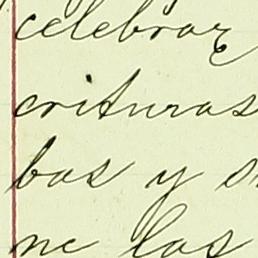 celebrar
crituras
bas y
ne las